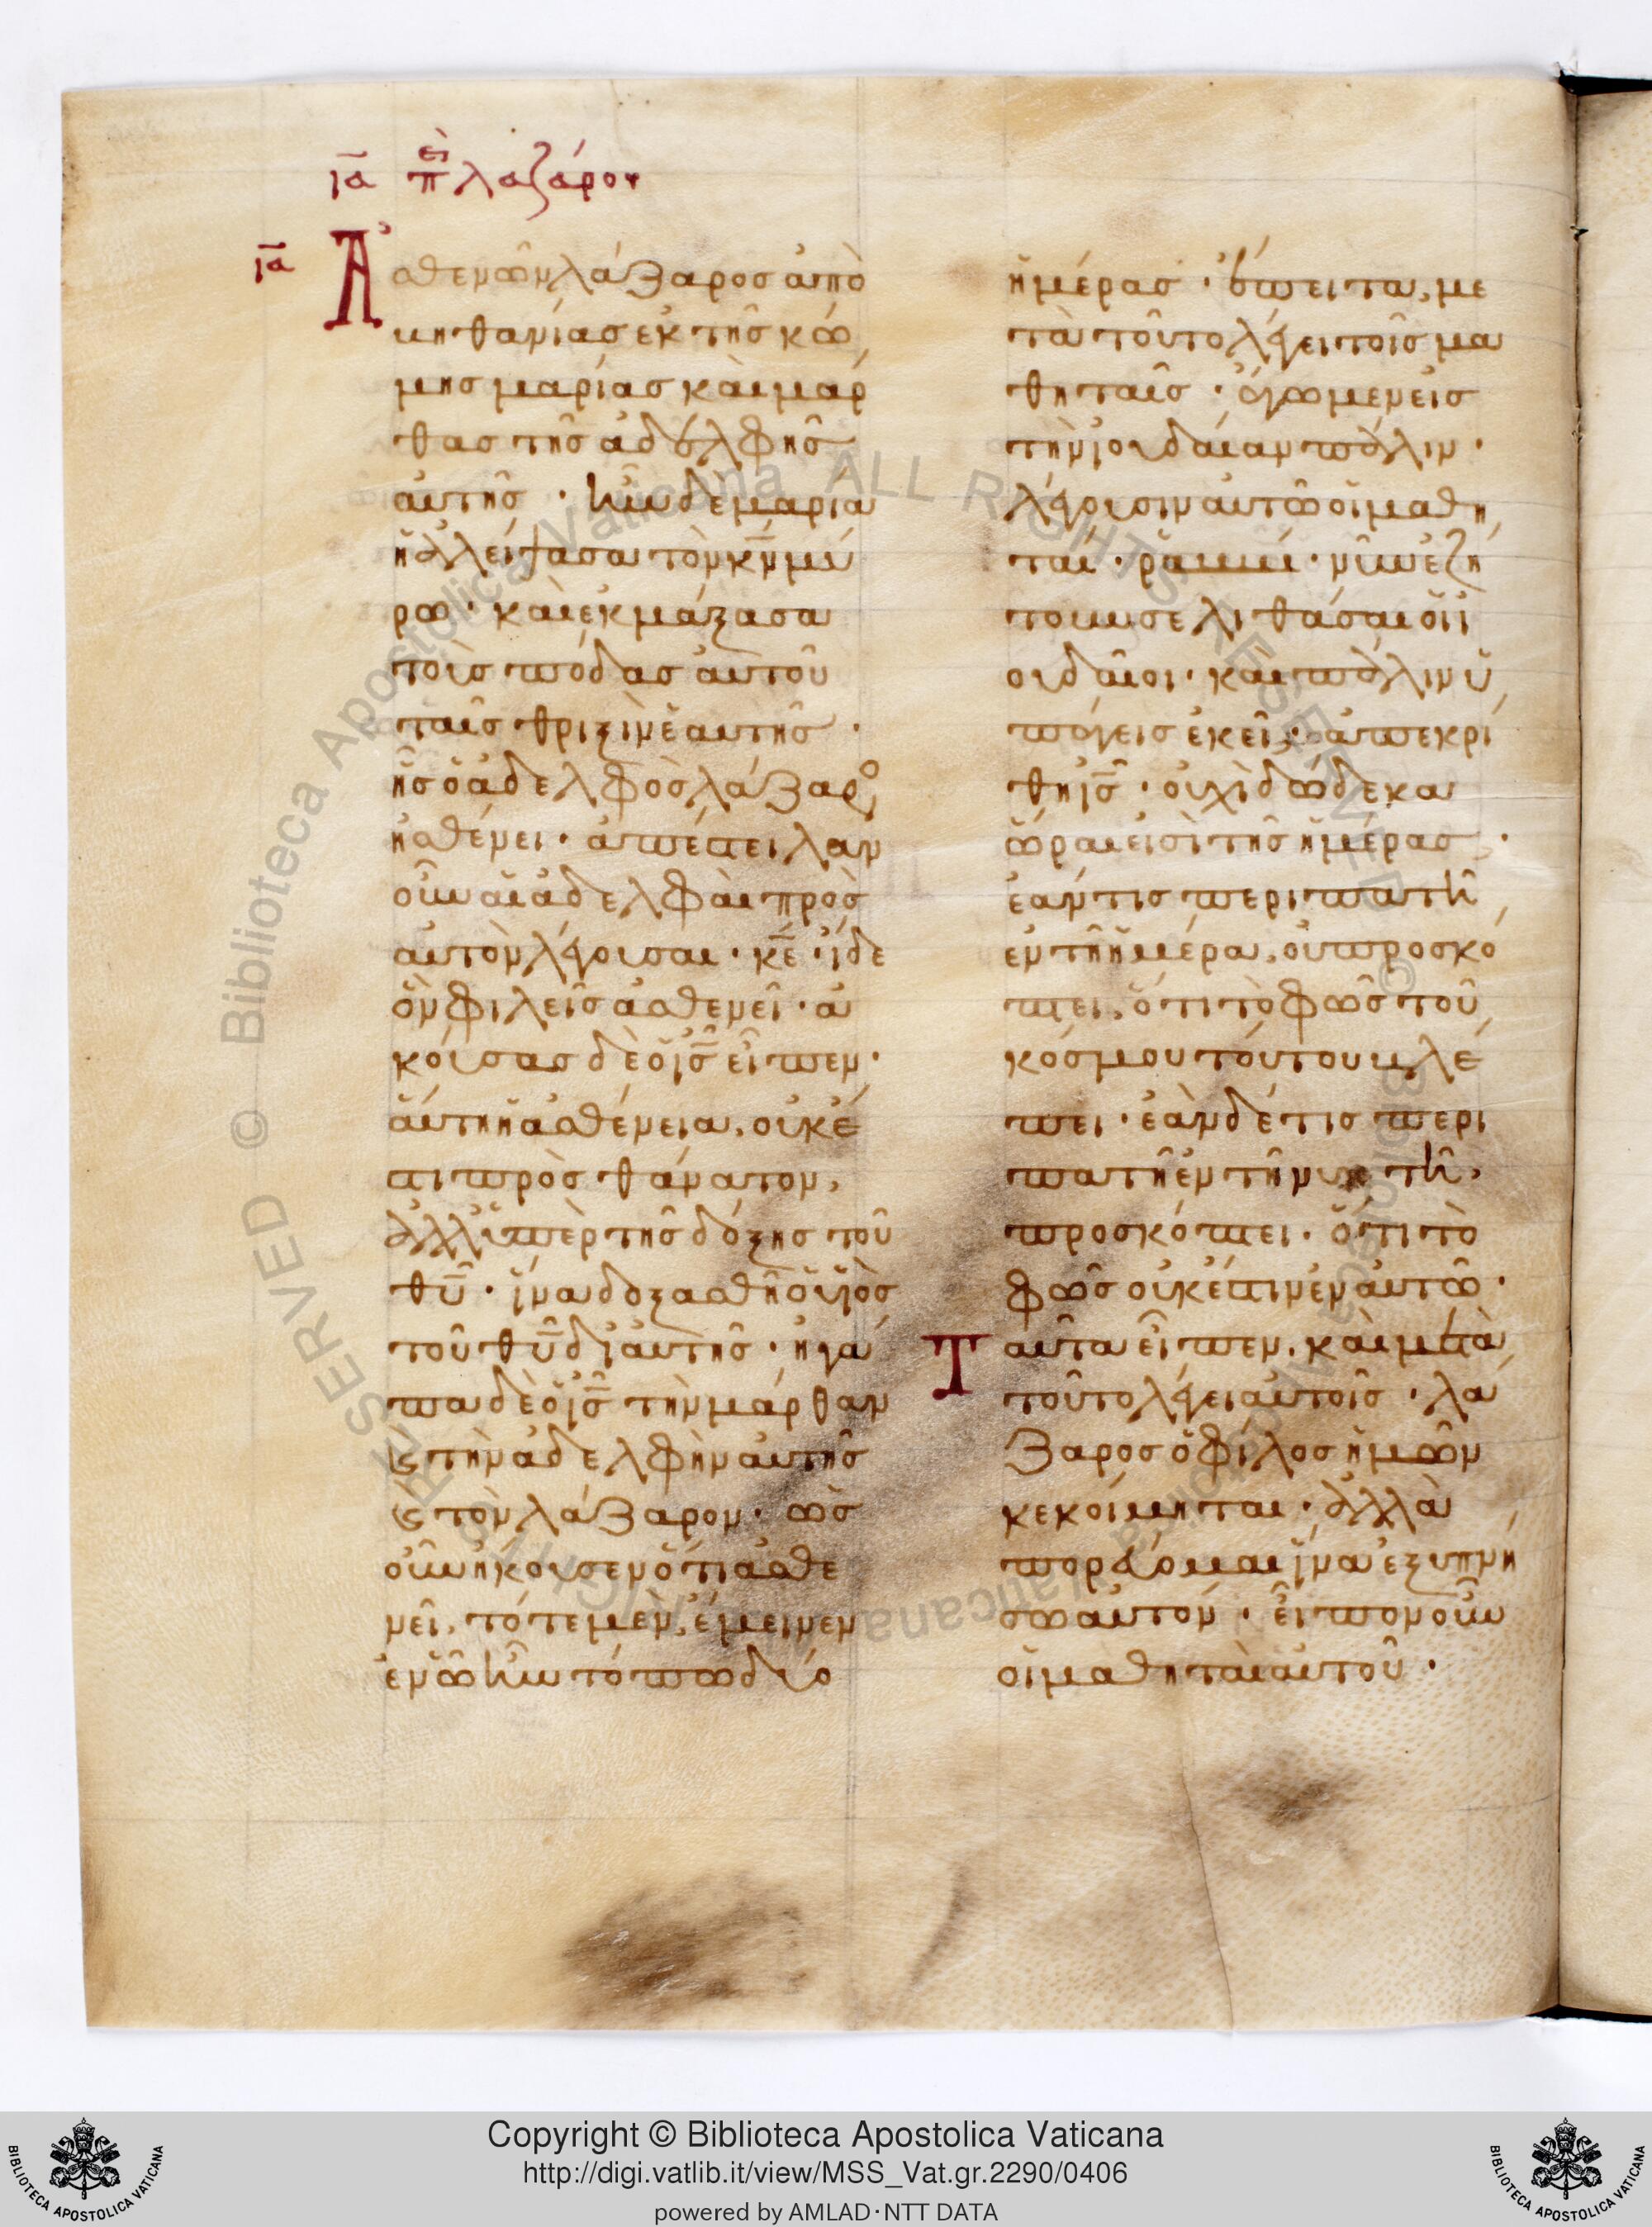 ια περὶ λαζάρου
ια
Ἀ
σθενῶν λάζαρος ἀπὸ
βηθανίας ἐκ τῆς κώ
μης μαρίας καὶ μάρ
θας τῆς ἀδελφῆς
αὐτῆς · ἦν δε μαρία
ἡ ἀλείψασα τὸν κν μύ
ρω · καὶ ἐκμάξασα
τοὺς πόδας αὐτοῦ
ταῖς θριξὶν ἑαυτῆς ·
ἧς ὁ ἀδελφὸς λάζαρος
ἠσθένει · ἀπέστειλαν
οὖν αἱ ἀδελφαὶ πρὸς
αὐτὸν λέγουσαι · κε · ἴδε
ὃν φιλεῖς ἀσθενεῖ · ἀ
κούσας δὲ ὁ ις εἶπεν ·
αὕτη ἡ ἀσθένεια, οὐκ ἔ
στι πρὸς θάνατον,
ἀλλ ὑπὲρ τῆς δόξης τοῦ
θυ · ἵνα δοξασθῆ ὁ υἱὸς
τοῦ θυ δι αὐτῆς · ἠγά
πα δὲ ὁ ις τὴν μάρθαν
ϗ τὴν ἀδελφὴν αὐτῆς
ϗ τὸν λάζαρον · ὡς
οὖν ἤκουσεν ὅτι ἀσθε
νεῖ, τότε μὲν, ἔμεινεν
ἐν ὧ ἦν τόπω δύο
ἡμέρας · ἔπειτα, με
τὰ τοῦτο λέγει τοῖς μα
θηταῖς · ἄγωμεν εἰς
τὴν ἰουδαίαν πάλιν ·
λέγουσιν αὐτῶ οἱ μαθη
ταί · ῥαββί · νῦν ἐζή
τουν σε λιθάσαι οἱ ἰ
ουδαῖοι · καὶ πάλιν ὑ
πάγεις ἐκεῖ; ἀπεκρί
θη ις · οὐχὶ δώδεκα
ὧραι εἰσὶ τῆς ἡμέρας ·
ἐάν τις περιπατῆ
ἐν τῆ ἡμέρα, οὐ προσκό
πτει, ὅτι τὸ φῶς τοῦ
κόσμου τούτου βλέ
πει · ἐὰν δέ τις περι
πατῆ ἐν τῆ νυκτῆ,
προσκόπτει · ὅτι τὸ
φῶς οὐκ ἔστιν ἐν αὐτῶ ·
Ταῦτα εἶπεν, καὶ μετὰ
τοῦτο λέγει αὐτοῖς · λά
ζαρος ὁ φίλος ἡμῶν
κεκοίμηται · ἀλλὰ
πορεύομαι ἵνα ἐξυπνή
σω αὐτόν · εἶπον οὖν
οἱ μαθηταὶ αὐτοῦ ·
Copyright © Biblioteca Apostolica Vaticana
http://digi.vatlib.it/view/MSS_Vat.gr.2290/0406
powered by AMLAD · NTT DATA
BIBLIOTECA APOSTOLICA VATICANA
BIBLIOTECA APOSTOLICA VATICANA